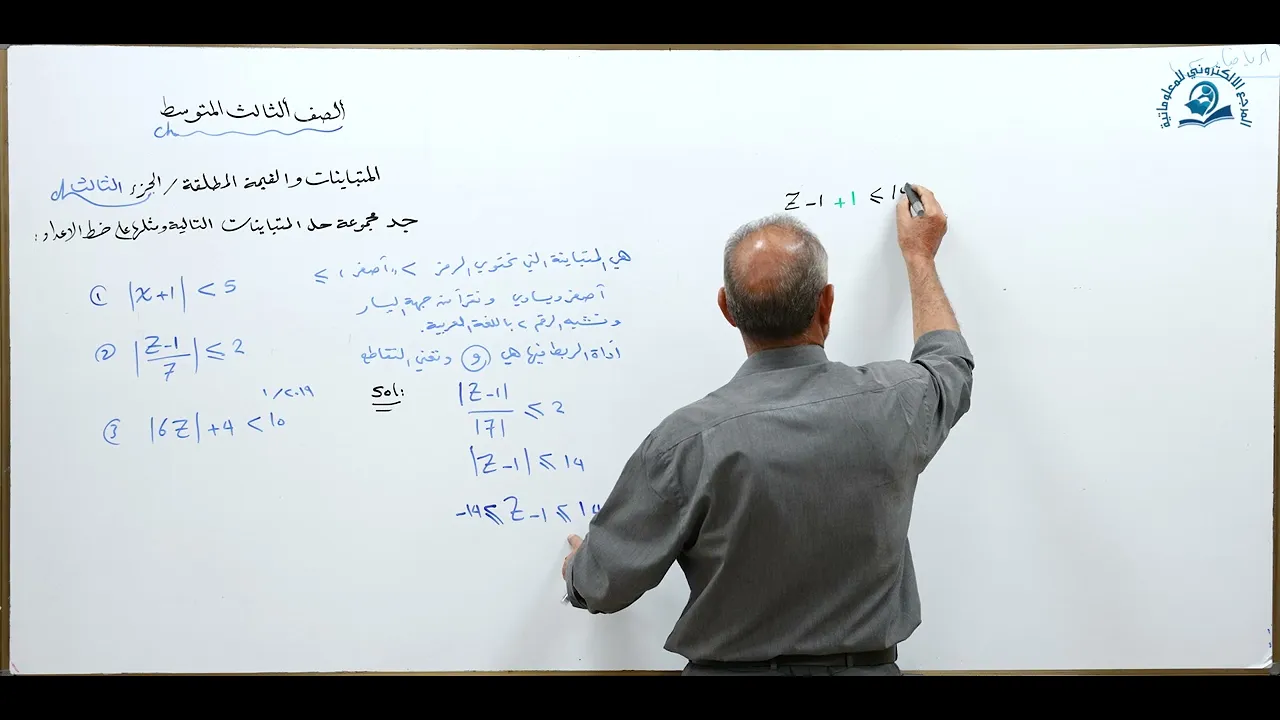 الصف الثالث المتوسط
المتباينات والقيمة المطلقة / الجزء الثالث
جد مجموعة حل المتباينات التالية ومثلها على خط الاعداد :
① |x+1| < 5
② |Z-1/7| ⩽ 2
1/2019
③ |6Z| +4 < 10
هي المتباينة التي تحتوي الرمز < "أصغر" ، ⩽
أصغر ويساوي وتقرأ من جهة اليسار
وتشبه الرقم ٢ باللغة العربية.
أداة الربط فيها هي (و) وتعني التقاطع
Sol:
|Z-1|/|7| ⩽ 2
|Z-1| ⩽ 14
-14 ⩽ Z-1 ⩽ 14
Z-1 +1 ⩽ 1
المرجع الالكتروني للمعلوماتية